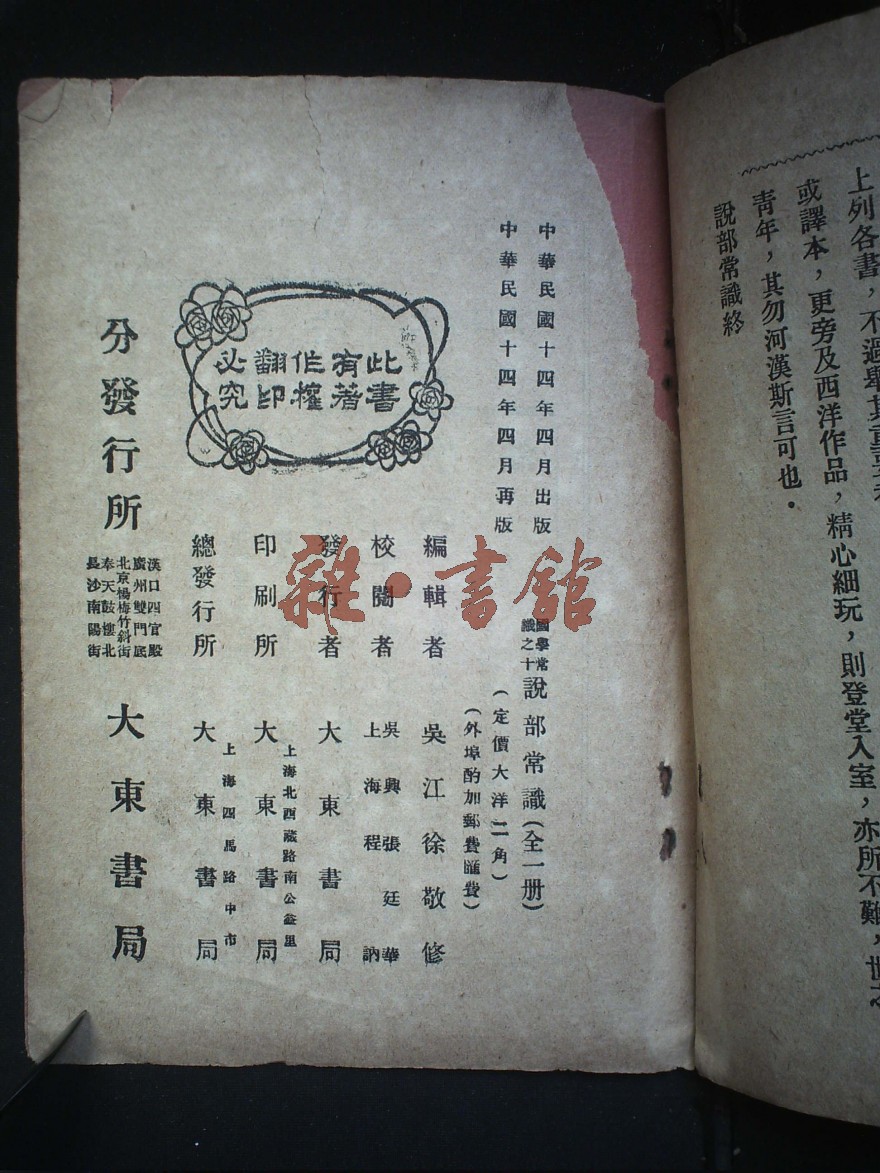 上列各書，不過舉其重要者
或譯本，更旁及西洋作品，精心細玩，則登堂入室，亦所不難，世之
青年，其勿河漢斯言可也．
說部常識終
中華民國十四年四月出版
中華民國十四年四月再版
國學常
識之十
說部常識（全一册）
（定價大洋二角）
（外埠酌加郵費匯費）
編輯者 吳江徐敬修
校閱者 吳興張廷華
上海程訥
發行者 大東書局
印刷所 上海北西藏路南公益里
大東書局
總發行所 上海四馬路中市
大東書局
此書
有著
作權
翻印
必究
分發行所
漢口四官殿
廣州雙門底
北京楊梅竹斜街
奉天鼓樓北
長沙南陽街
大東書局
雜·書館